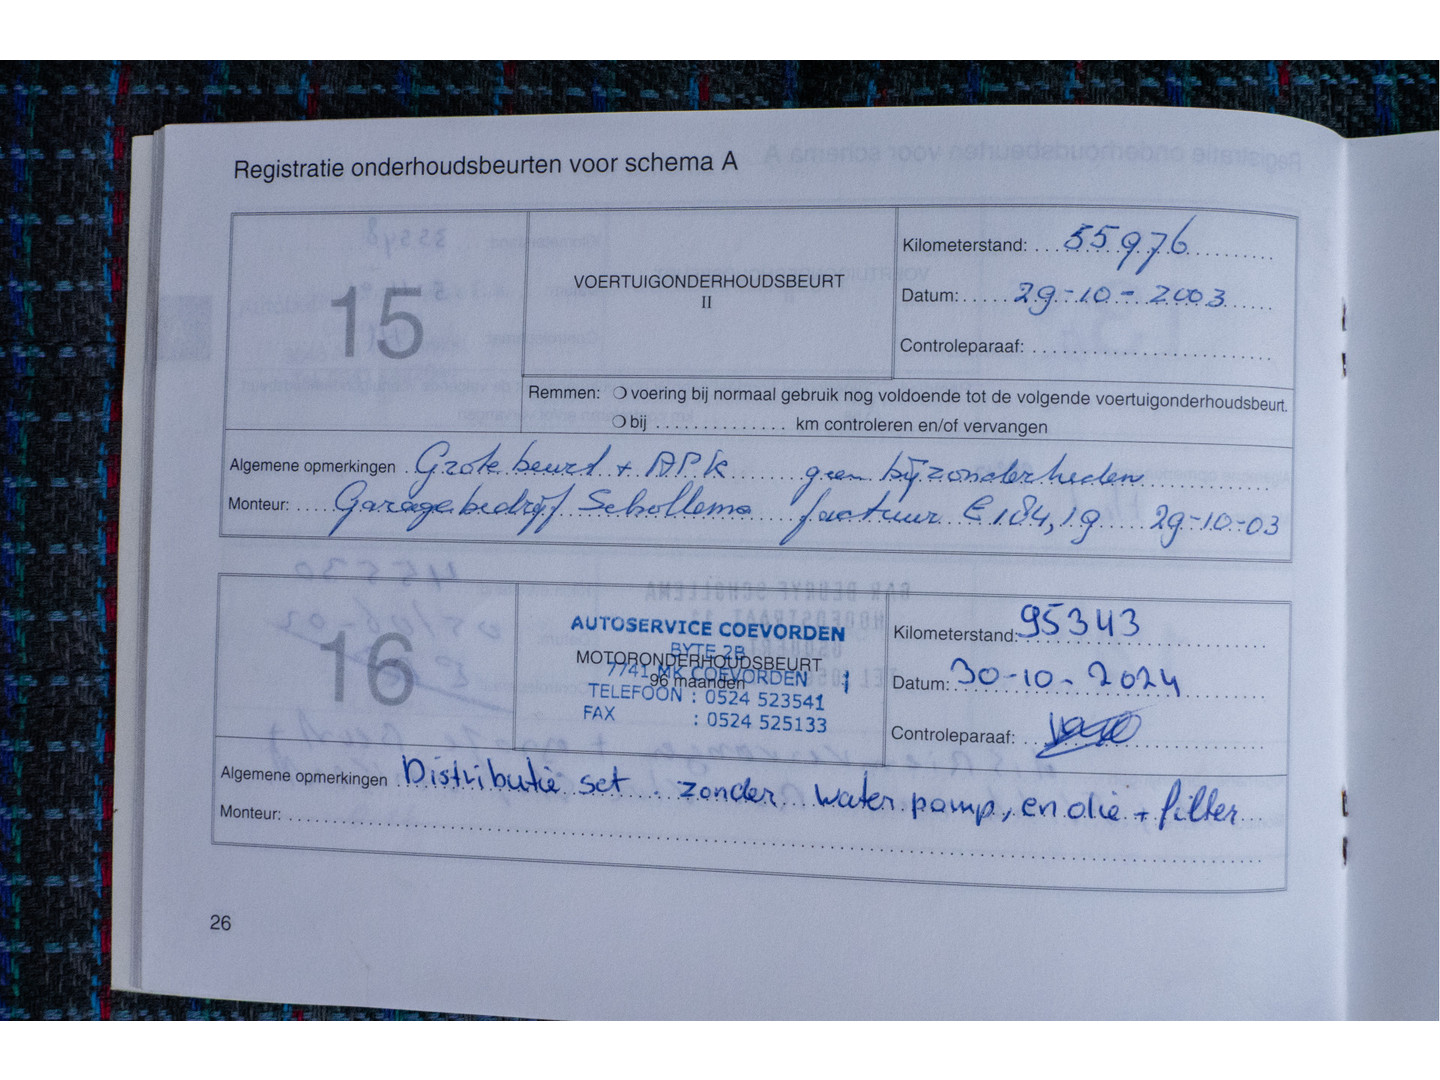 Registratie onderhoudsbeurten voor schema A
15
VOERTUIGONDERHOUDSBEURT
II
Kilometerstand: 55976
Datum: 29-10-2003
Controleparaaf:
Remmen: voering bij normaal gebruik nog voldoende tot de volgende voertuigonderhoudsbeurt.
bij .............. km controleren en/of vervangen
Algemene opmerkingen Grote beurt + APK geen bijzonderheden
Monteur: Garagebedrijf Schollema factuur € 184,19 29-10-03
16
AUTOSERVICE COEVORDEN
BYTE 2B
MOTORONDERHOUDSBEURT
7741 MK COEVORDEN
96 maanden
TELEFOON : 0524 523541
FAX : 0524 525133
Kilometerstand: 95343
Datum: 30-10-2024
Controleparaaf:
Algemene opmerkingen Distributie set. zonder waterpomp, en olie + filter
Monteur:
26